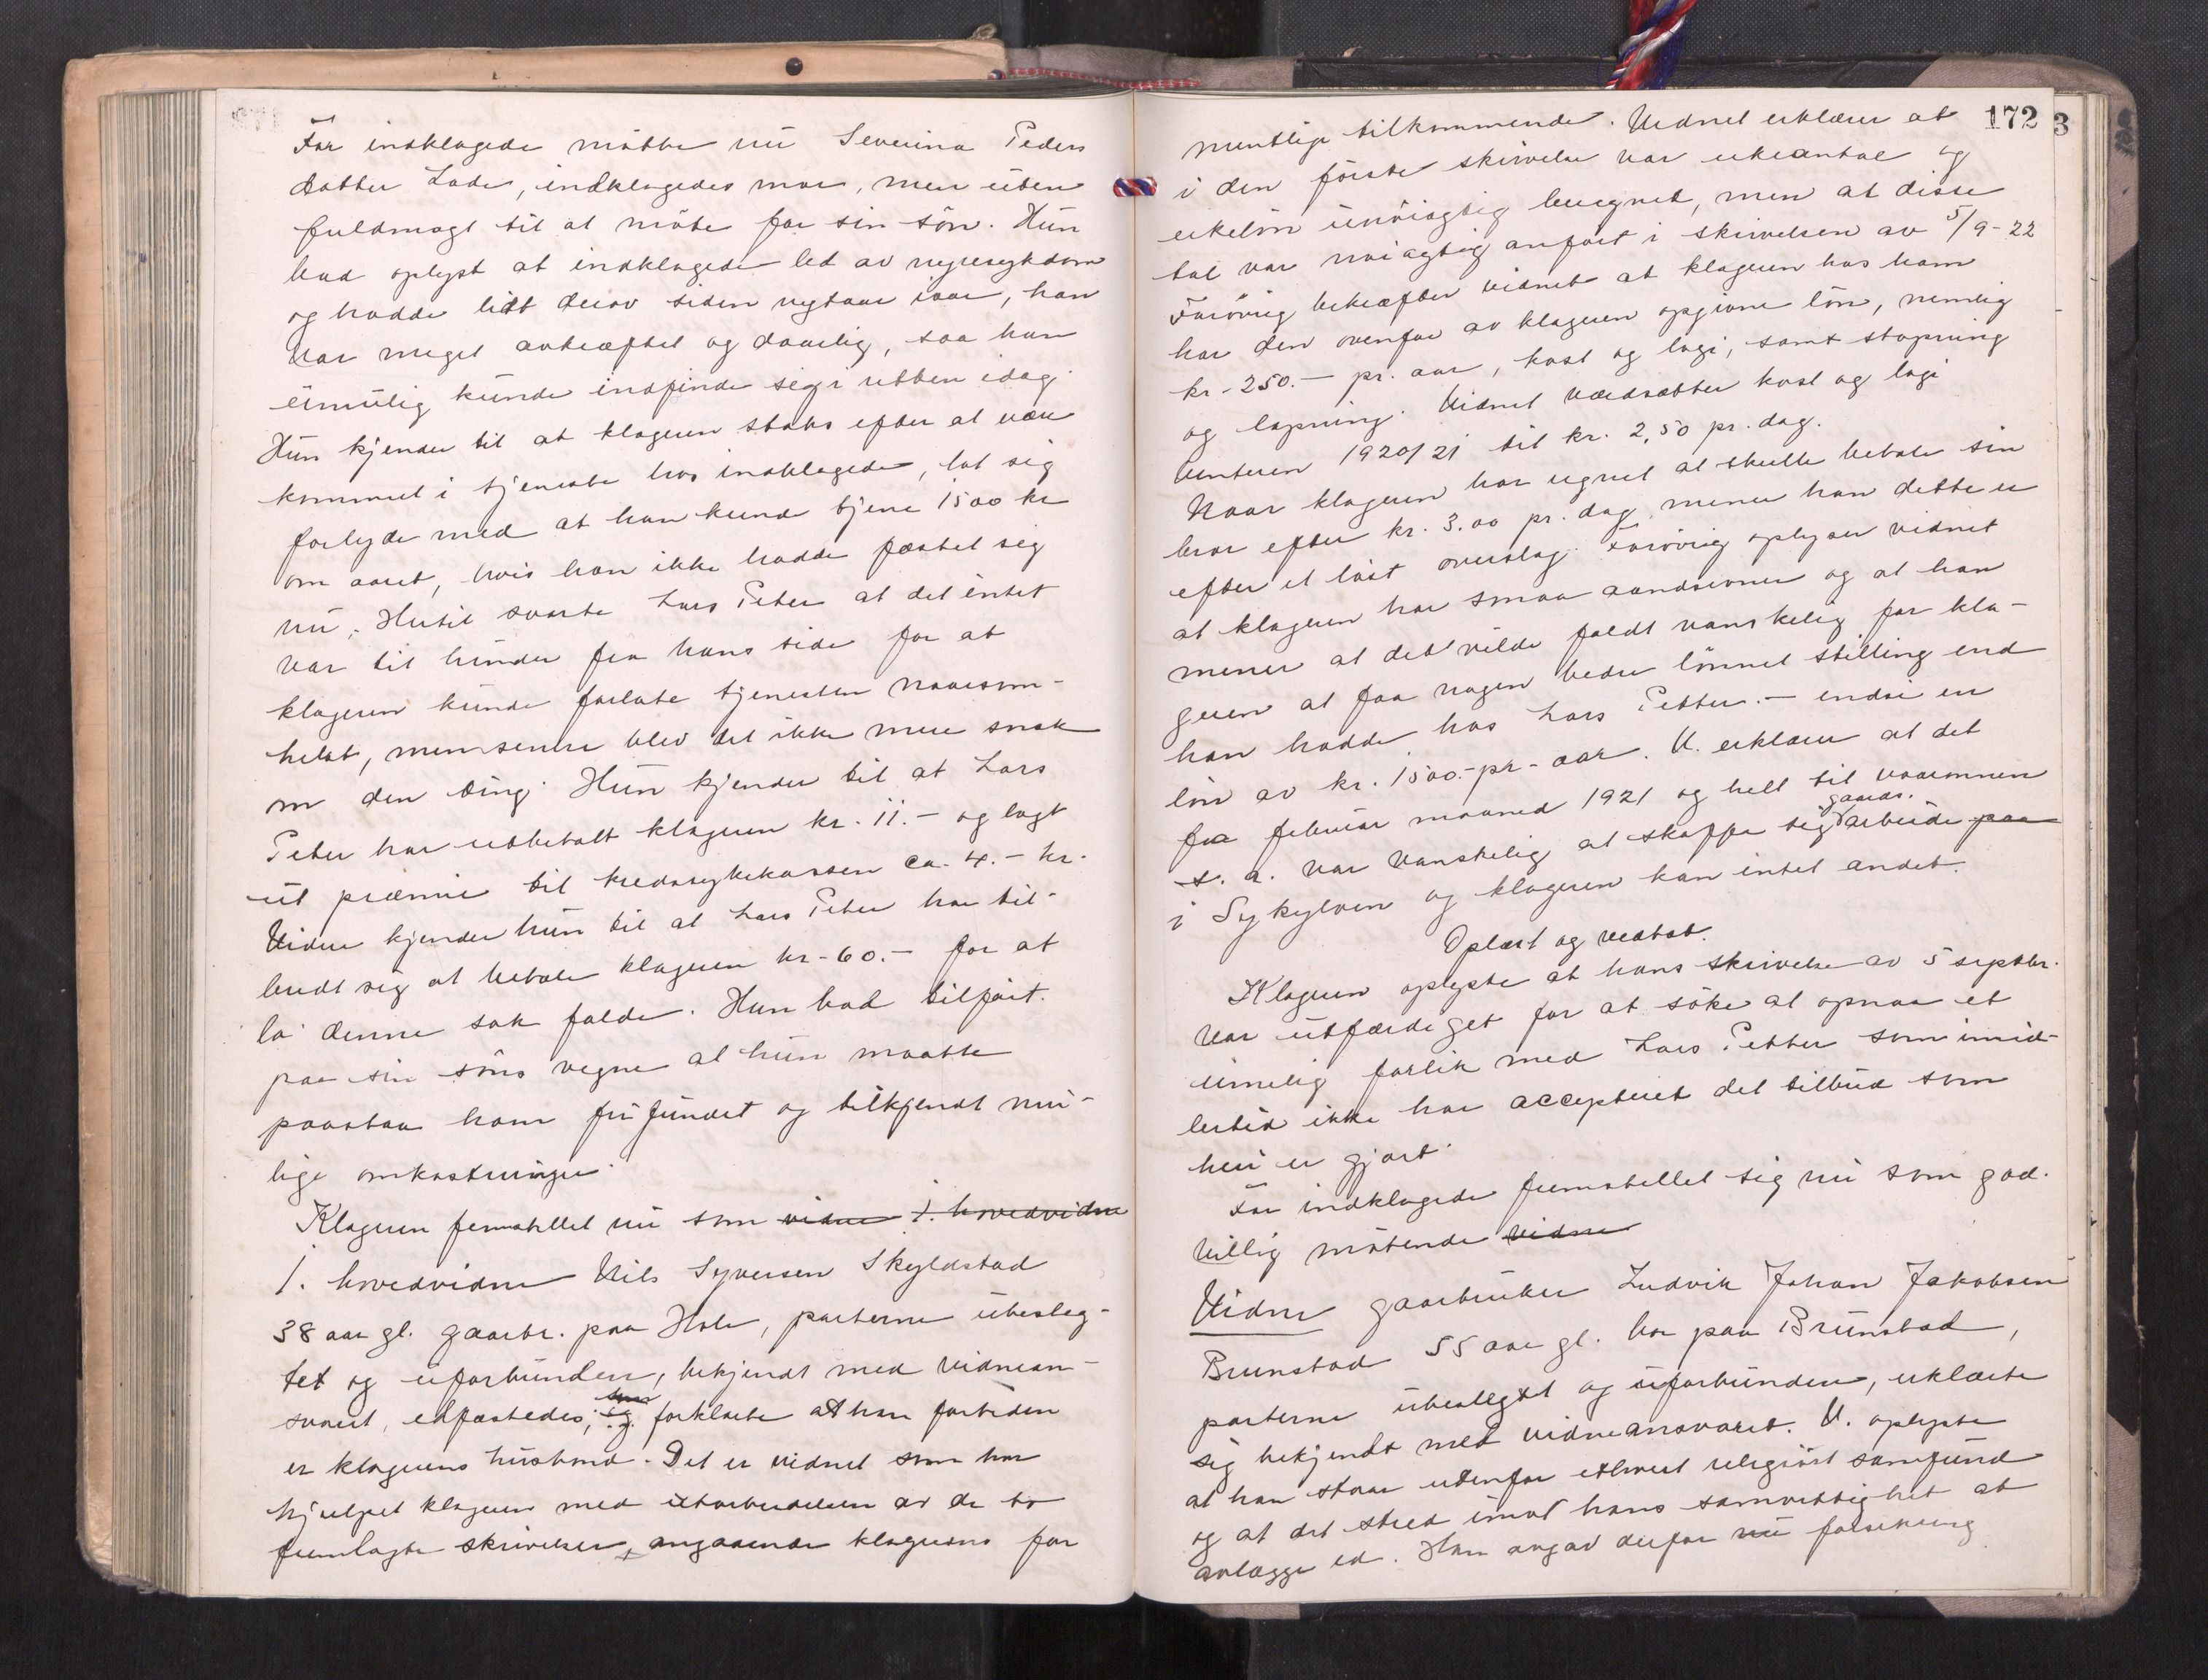 For indklagede møtte nu Severina Peders
datter Lade, indklagedes mor, men uten
fuldmagt til at møte for sin søn. Hun
bad oplyst at indklagede led av nyresykdom
og hadde lidt derav siden nytaar iaar, han
var meget avkræftet og daarlig, saa han
umulig kunde indfinde sig i retten idag.
Hun kjender til at klageren straks efter at være
kommet i tjeneste hos indklagede, lot sig
forlyde med at han kunde tjene 1500 kr
om aaret, hvis han ikke hadde fæstet sig
nu. Hertil svarte Lars Peter at det intet
var til hinder fra hans side for at
klageren kunde forlate tjenesten naarsom-
helst, men senere blev det ikke mere snak
om den ting. Hun kjender til at Lars
Peter har utbetalt klageren kr. 11.- og lagt
ut præmie til kredssykekassen ca. 4.- kr.
Videre kjender hun til at Lars Peter har til-
budt sig at betale klageren kr. 60.- for at
la denne sak falde. Hun bad tilført
paa sin søns vegne at hun maatte
paastaa ham frifundet og tilkjendt mu-
lige omkostninger.
Klageren fremstillet nu som vidne 1. hovedvidne
1. hovedvidne Nils Syversen Skyldstad
38 aar gl. gaarbr. paa Hole, parterne ubeslæg-
tet og uforbunden, bekjendt med vidnean-
svaret, edfæstedes, og forklarte at han fortiden
er klagerens husbond. Det er vidnet som har
hjulpet klageren med utarbeidelsen av de to
fremlagte skrivelser, angaaende klagerens for
172
3
mentlige tilkommende. Vidnet erklærer at
i den første skrivelse var ukeantal og
ukeløn unøiagtig beregnet, men at disse
tal var nøiagtig anført i skrivelsen av 5/9-22
Forøvrig bekræfter vidnet at klageren hos ham
har den ovenfor av klageren opgivne løn, nemlig
kr. 250.- pr. aar, kost og logi, samt stopning
og lapning. Vidnet værdsætter kost og logi
vinteren 1920/21 til kr. 2,50 pr. dag.
Naar klageren har regnet at skulle betale sin
bror efter kr. 3.00 pr. dag mener han dette er
efter et løst overslag. Forøvrig oplyser vidnet
at klageren har smaa aandsevner og at han
mener at det vilde faldt vanskelig for kla-
geren at faa nogen bedre lønnet stilling end
han hadde hos Lars Petter. - endsi en
løn av kr. 1500.- pr. aar. V. erklærer at det
fra februar maaned 1921 og helt til vaaronnen
s. a. var vanskelig at skaffe sig gaards. arbeide paa
i Sykylven og klageren kan intet andet.
Oplæst og vedtat.
Klageren oplyste at hans skrivelse av 5 septbr.
var utfærdiget for at søke at opnaa et
rimelig forlik med Lars Petter som imid-
lertid ikke har accepteret det tilbud som
heri er gjort.
For indklagede fremstillet sig nu som god-
villig møtende vidne
Vidne gaarbruker Ludvik Johan Jakobsen
Brunstad 55 aar gl. bor paa Brunstad,
parterne ubeslegtet og uforbunden, erklærte
sig bekjendt med vidneansvaret. V. oplyste
at han staar utenfor ethvert religiøst samfund
og at det stred imot hans samvittighet at
avlægge ed. Han avgav derfor nu forsikring